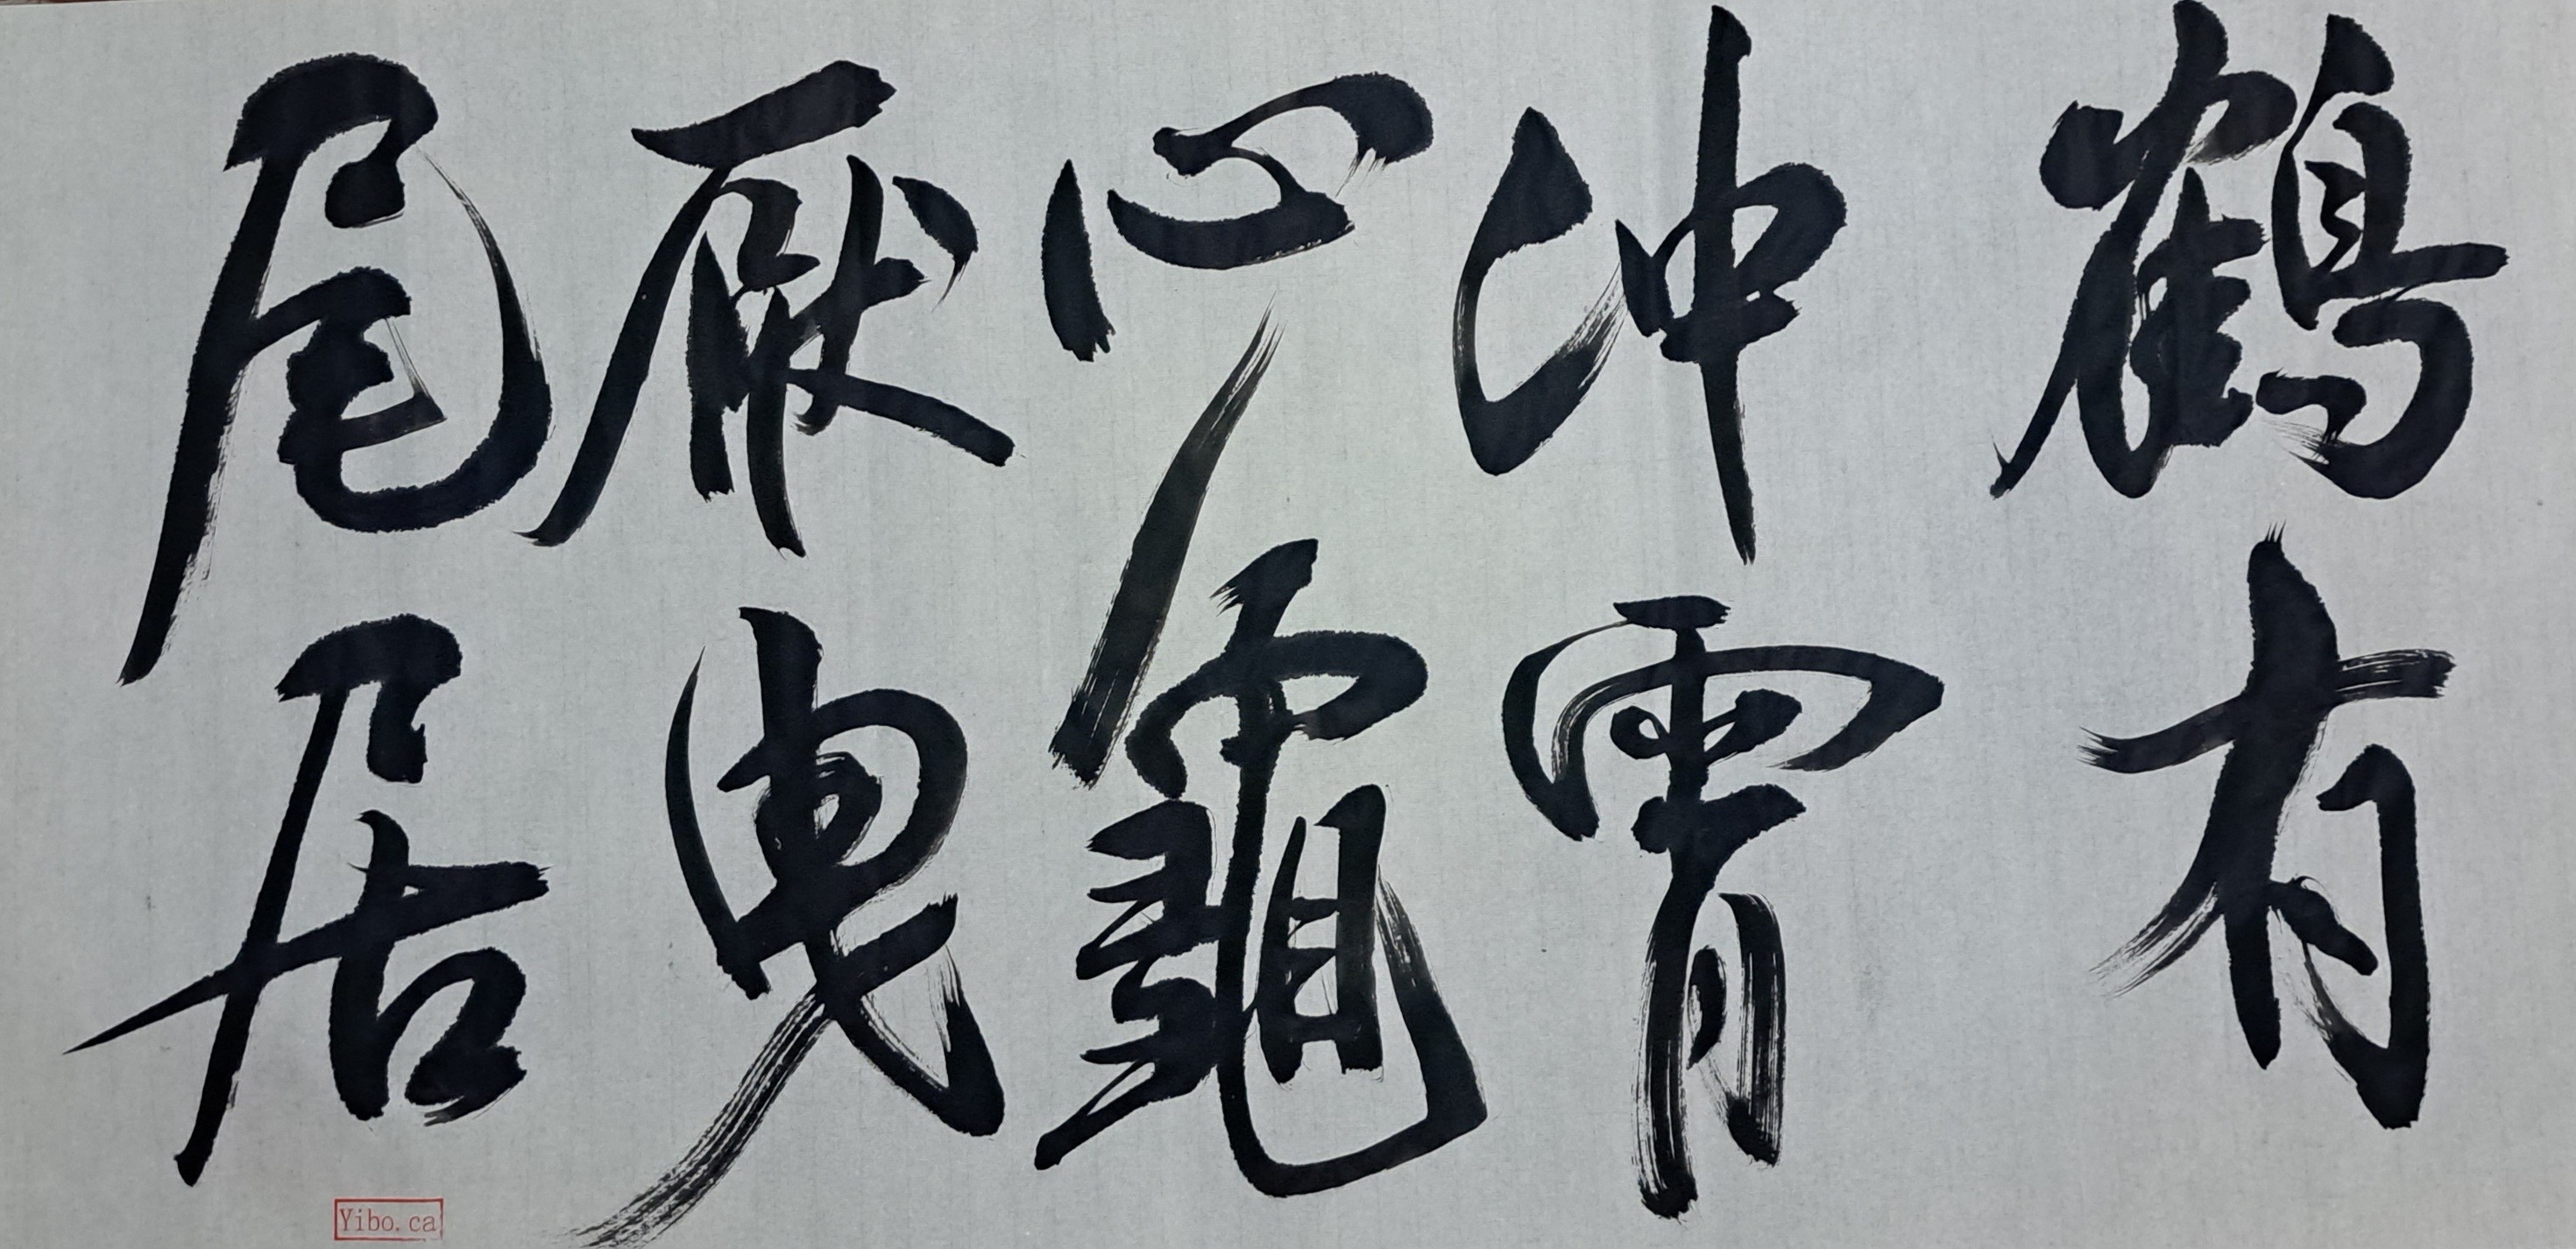 鶴有
沖霄
心龜
厭曳
尾居
Yibo.ca